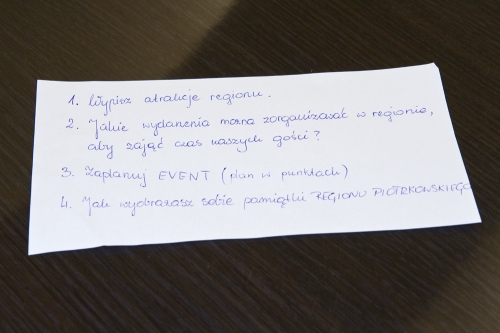 1. Wypisz atrakcje regionu.
2. Jakie wydarzenia można zorganizować w regionie,
aby zająć czas naszych gości?
3. Zaplanuj EVENT (plan w punktach)
4. Jak wyobrażasz sobie pamiątki REGIONU PIOTRKOWSKIEGO